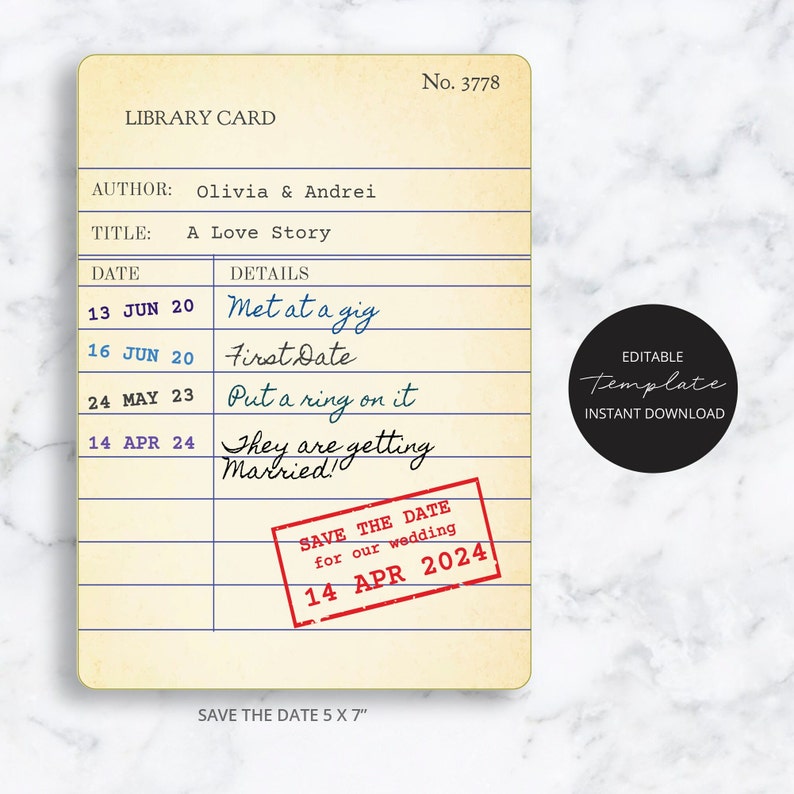 No. 3778
LIBRARY CARD
AUTHOR: Olivia & Andrei
TITLE: A Love Story
DATE DETAILS
13 JUN 20 Met at a gig
16 JUN 20 First Date
24 MAY 23 Put a ring on it
14 APR 24 They are getting
Married!
SAVE THE DATE
for our wedding
14 APR 2024
EDITABLE
Template
INSTANT DOWNLOAD
SAVE THE DATE 5 X 7”